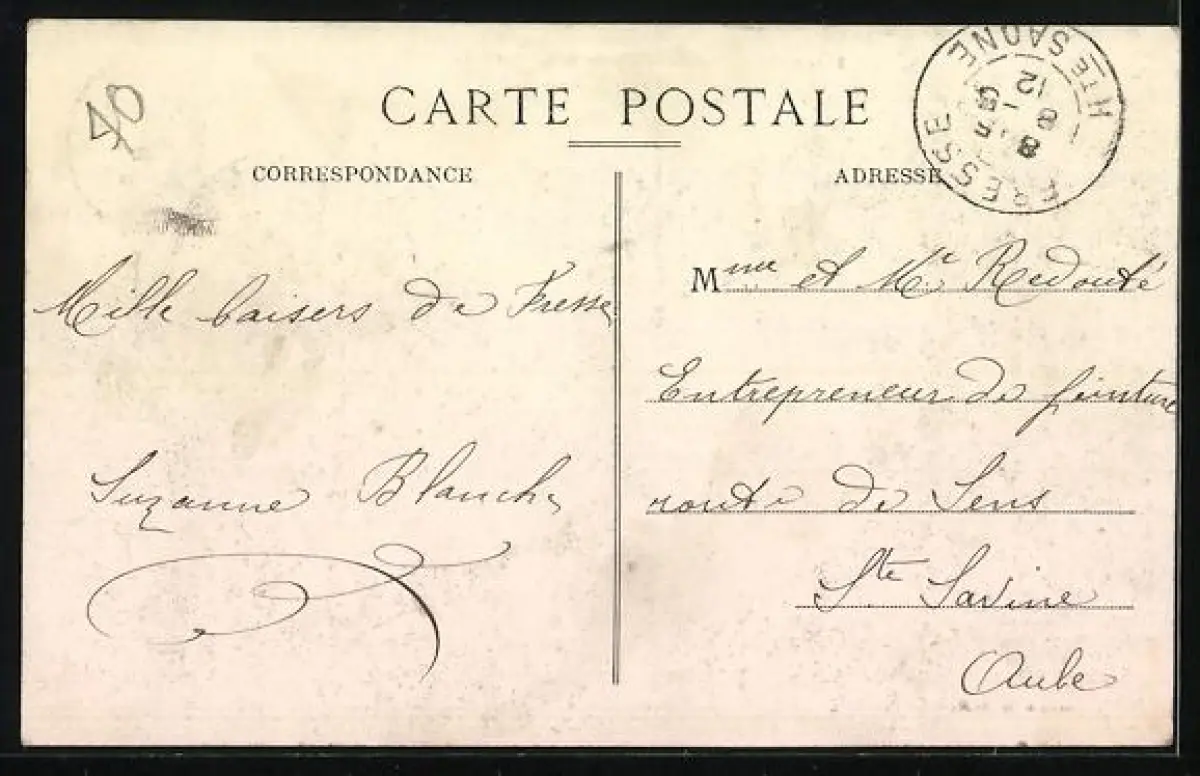 40
CARTE POSTALE
CORRESPONDANCE
Mille baisers de Fresse
Suzanne Blanche
ADRESSE
FRESSE
HTE SAONE
12
Mme et Mr Redouté
Entrepreneur de peinture
route de Sens
Ste Savine
Aube